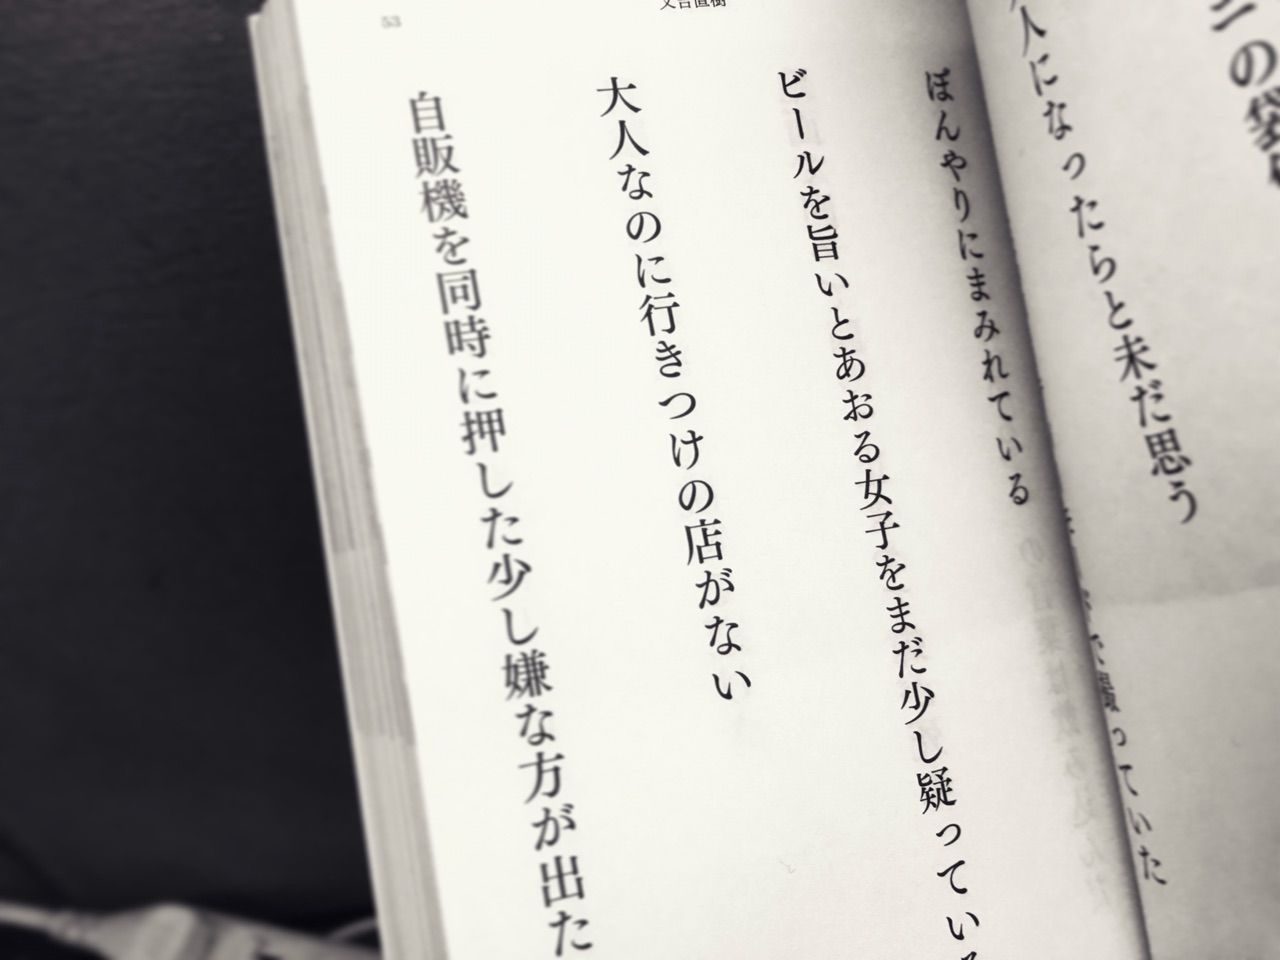 人になったらと未だ思う
っていた
ぼんやりにまみれている
ビールを旨いとあおる女子をまだ少し疑ってい
大人なのに行きつけの店がない
自販機を同時に押した少し嫌な方が出た
又吉直樹
53